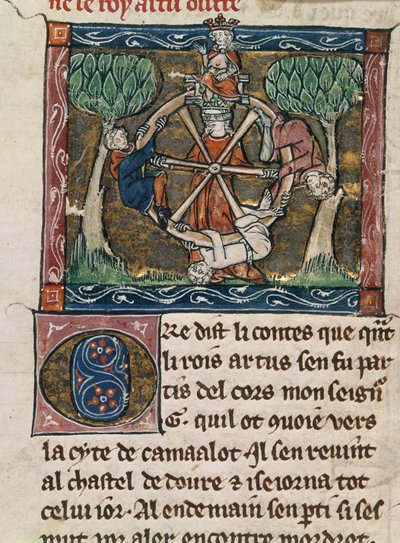 ne le roy artu outre
Ore dist li contes que qñt
li rois artus sen fu par
tis del cors mon seignr
G. quil ot enuoie vers
la cyte de camaalot. Il sen reuint
al chastel de doure & iseiorna tot
celui ior. Al endemain sen pti si ses
mut por aler encontre mordret.